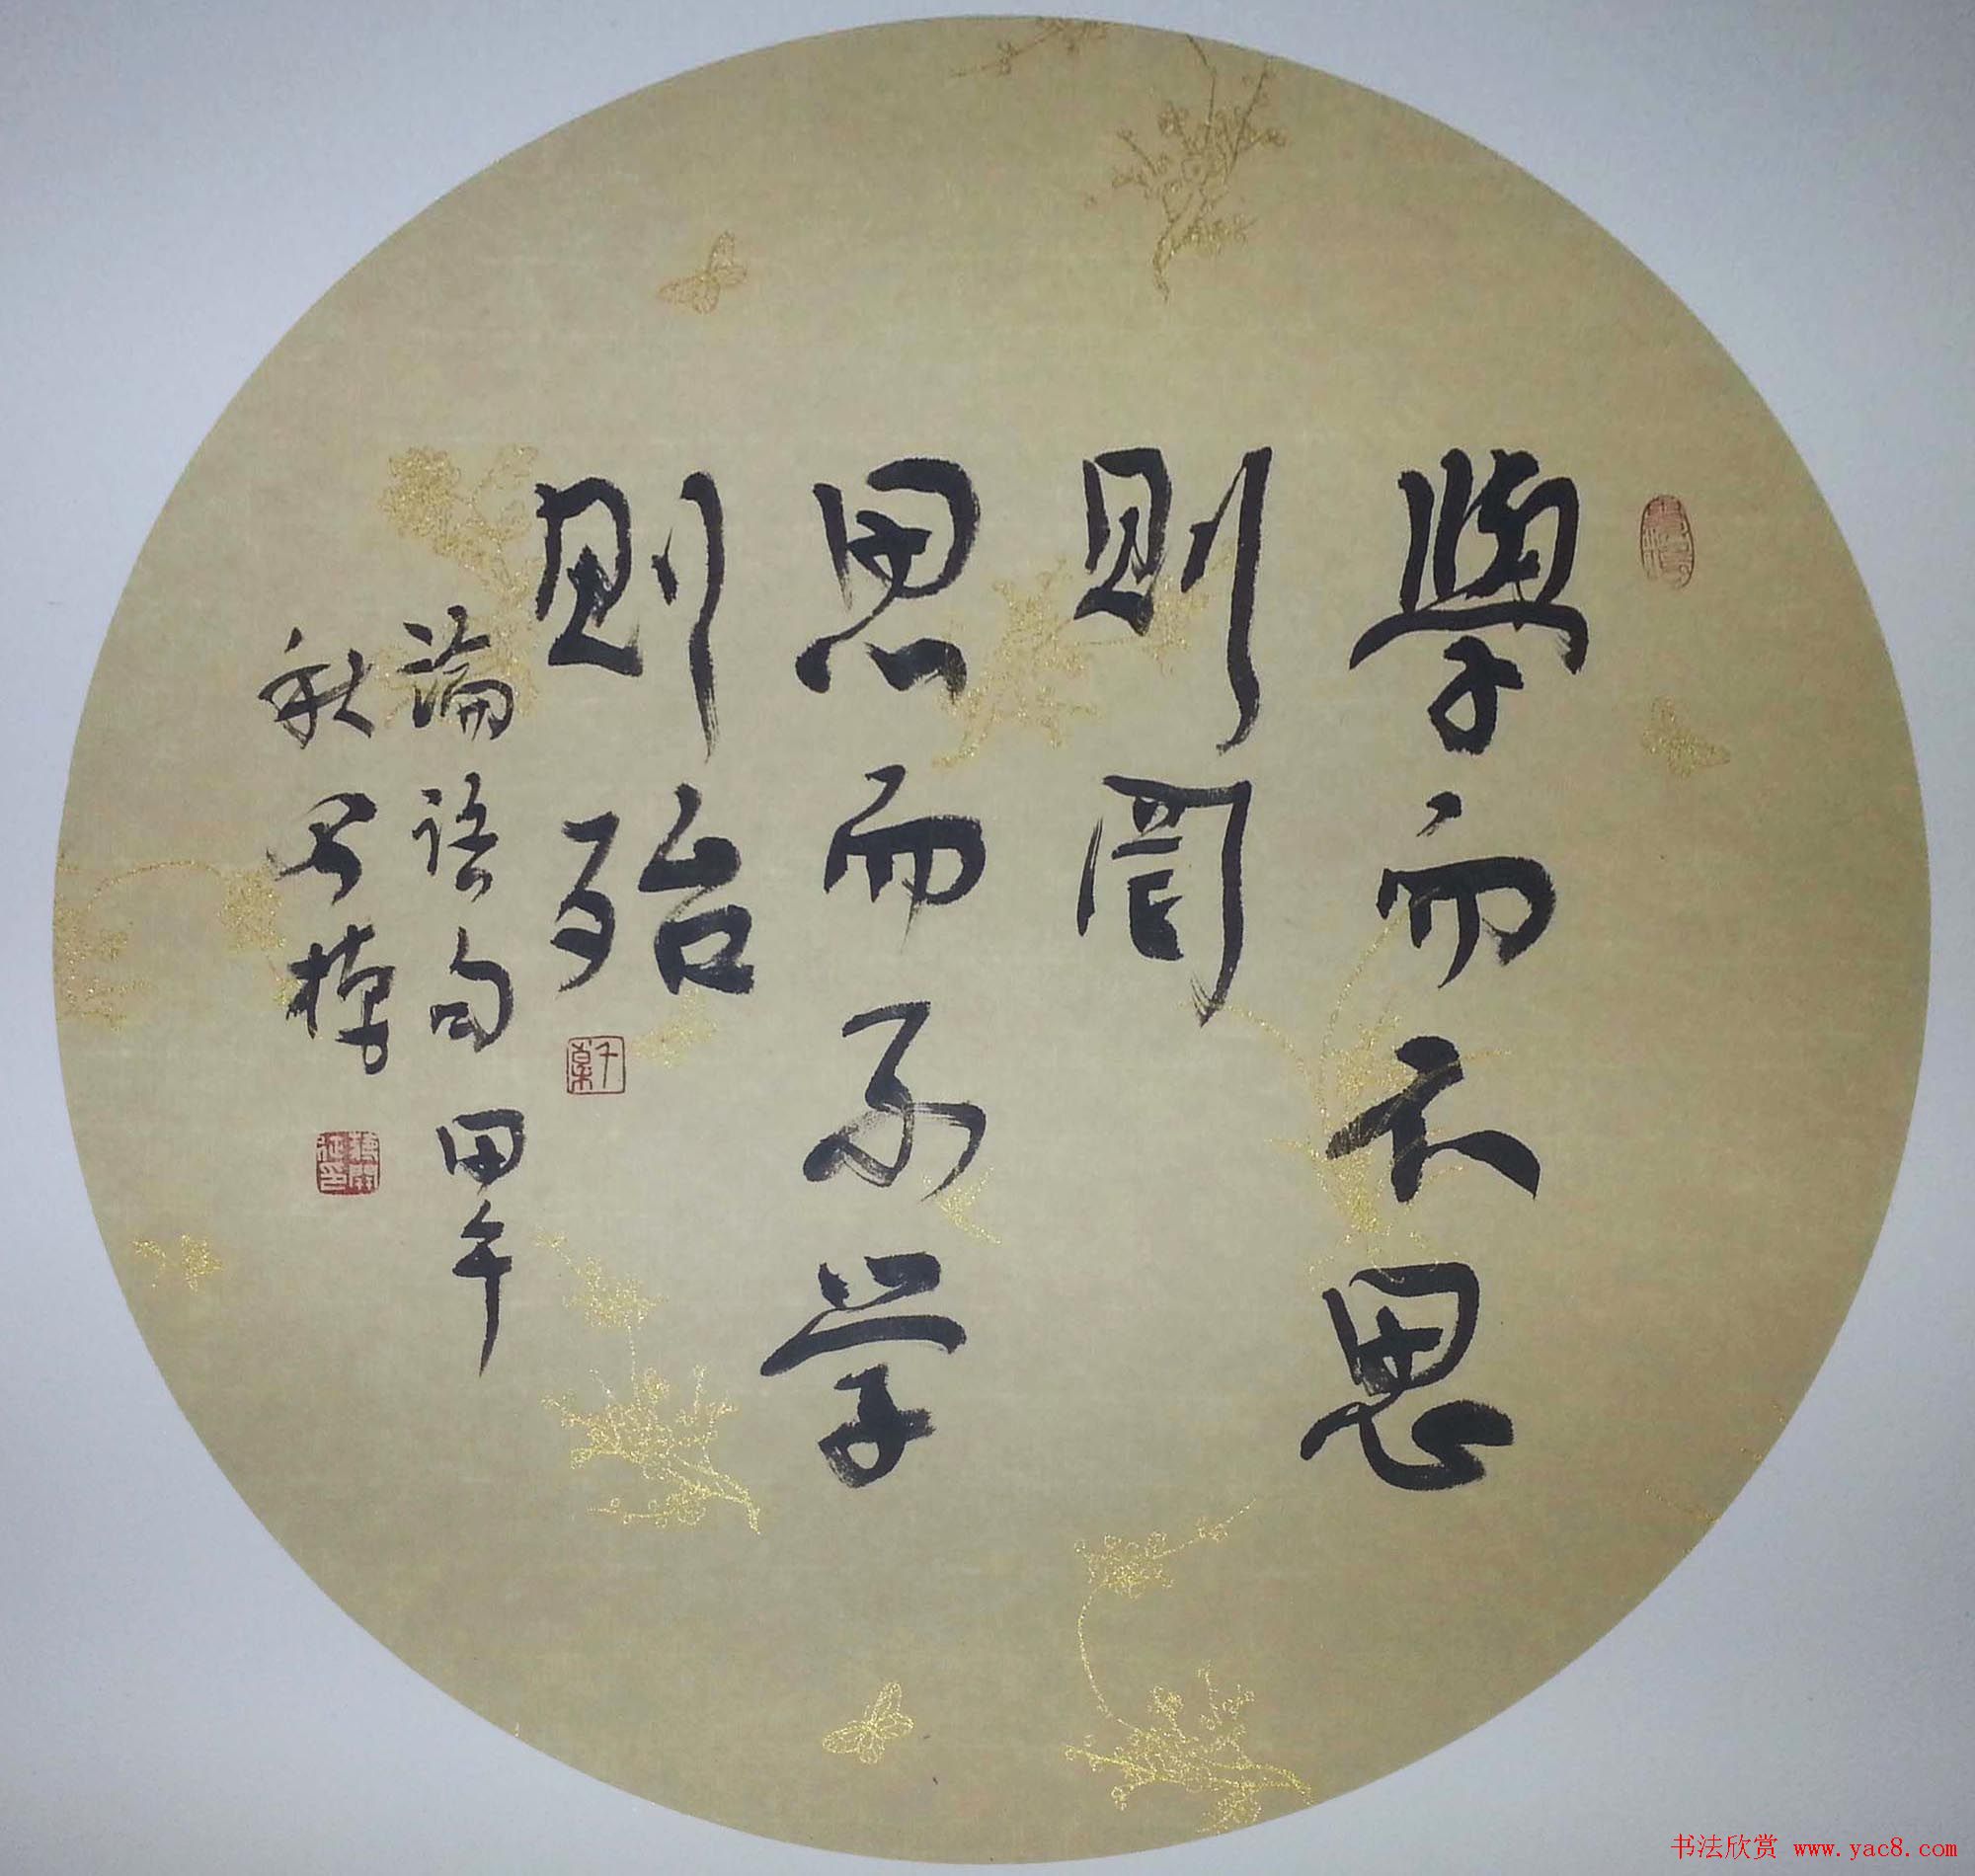 學而不思
則罔
思而不学
則殆
論語句 甲午
秋
千
书法欣赏 www.yac8.com